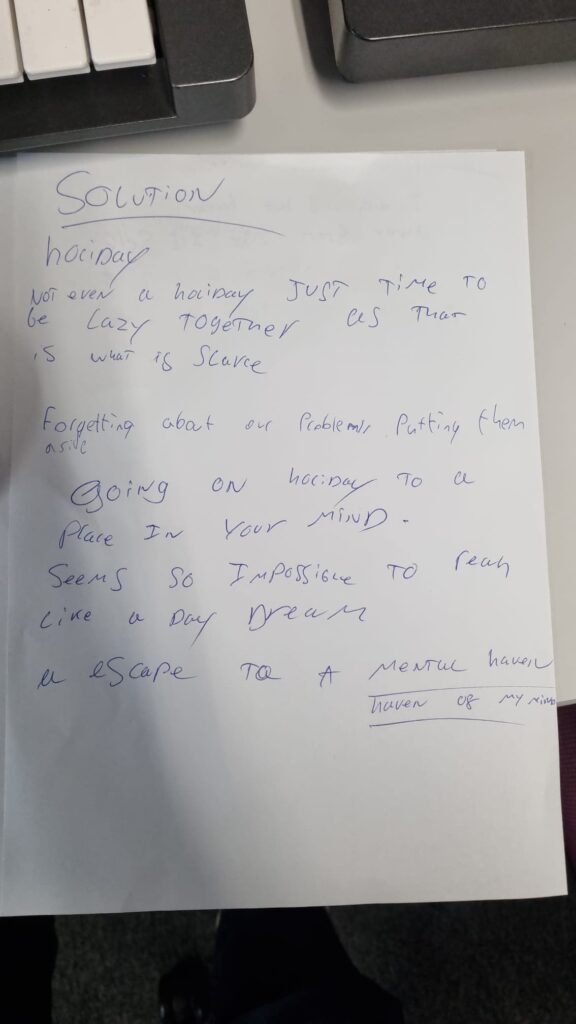 SOLUTION
holiday
Not even a holiday JUST TIME TO
be Lazy TOgeTHER as THAT
is what is Scarce
Forgetting about our Problems Putting them
aside
GOING ON holiday TO a
Place IN YOUR MIND.
SeeMS SO IMPOSSIBLE TO reah
LIKE a Day DReaM
a eScaPE TO A MENTAL haven
haven OF MY MIND